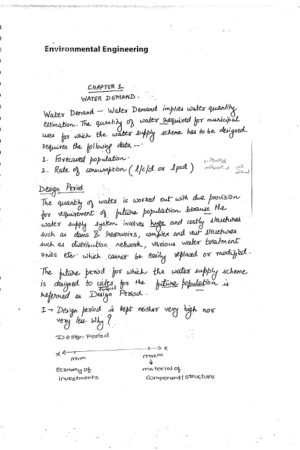 Environmental Engineering
CHAPTER 1
WATER DEMAND.
Water Demand - Water Demand implies water quantity
estimation. The quantity of water required for municipal
uses for which the water supply scheme has to be designed
requires the following data -
1. Forecasted population.
2. Rate of consumption (l/c/d or lpcd)
Design Period
The quantity of water is worked out with due provision
for requirement of future population because the
water supply system involves huge and costly structures
such as dams & reservoirs, complex and vast structures
such as distribution network, various water treatment
units etc. which cannot be easily replaced or modified.
The future period for which the water supply scheme
is designed to cater for the future population is
referred as Design Period.
I → Design period is kept neither very high nor
very less. Why?
Design Period
x ← → x
min max
economy of material of
investments component/structure